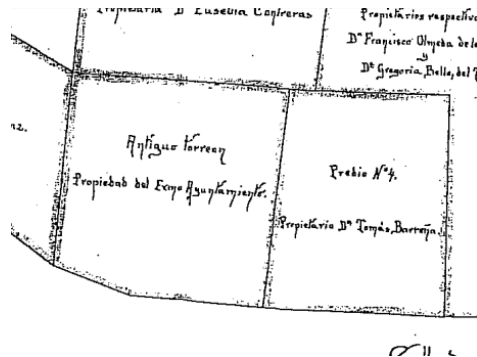 Propietaria Dª Eusebia Contreras
Propietarios respectivo
Dⁿ Francisco Olmeda de
y
Dª Gregoria Bello, del
nz.
Antiguo torreon
Propiedad del Exmo Ayuntamiento.
Predio Nº 4.
Propietario Dⁿ Tomás, Barreña.